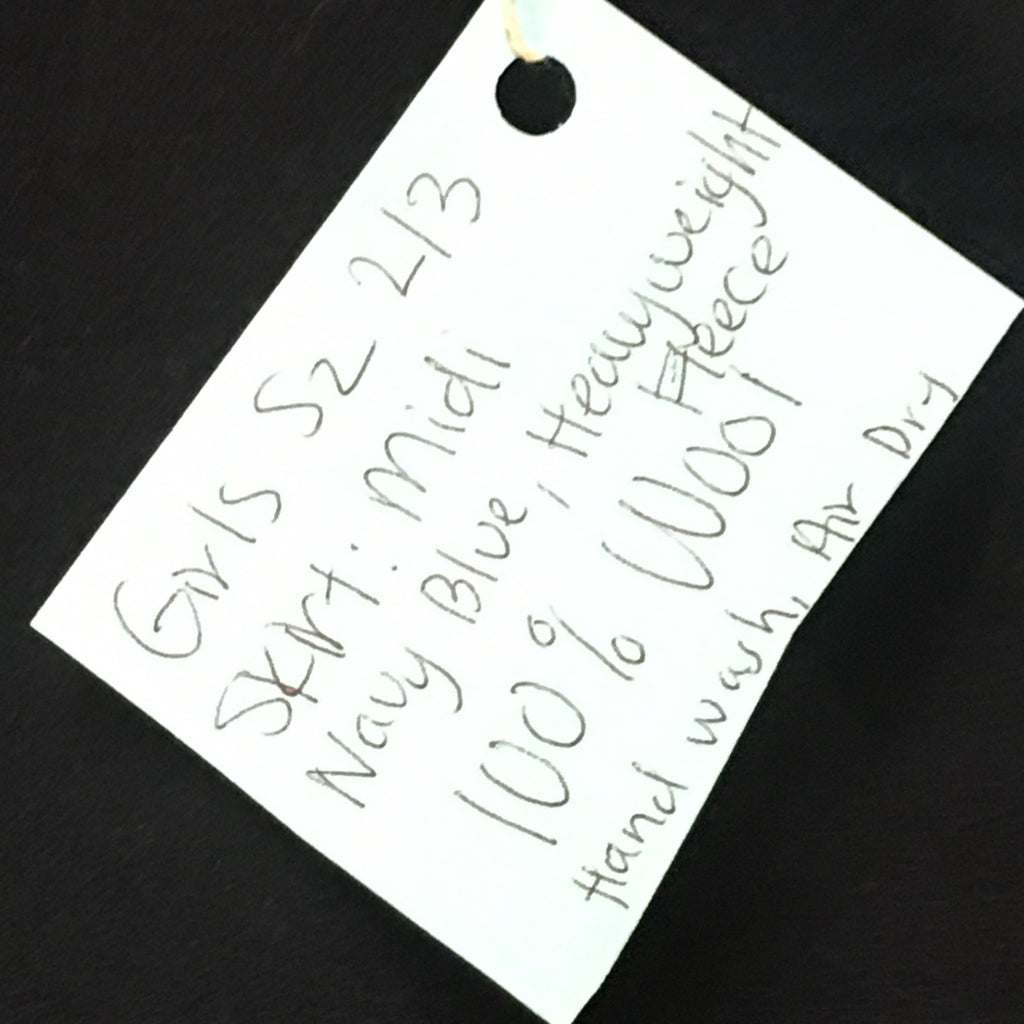 Girls Sz 2/3
Skirt: Midi
Navy Blue, Heavyweight
Fleece
100% Wool
Hand wash, Air Dry